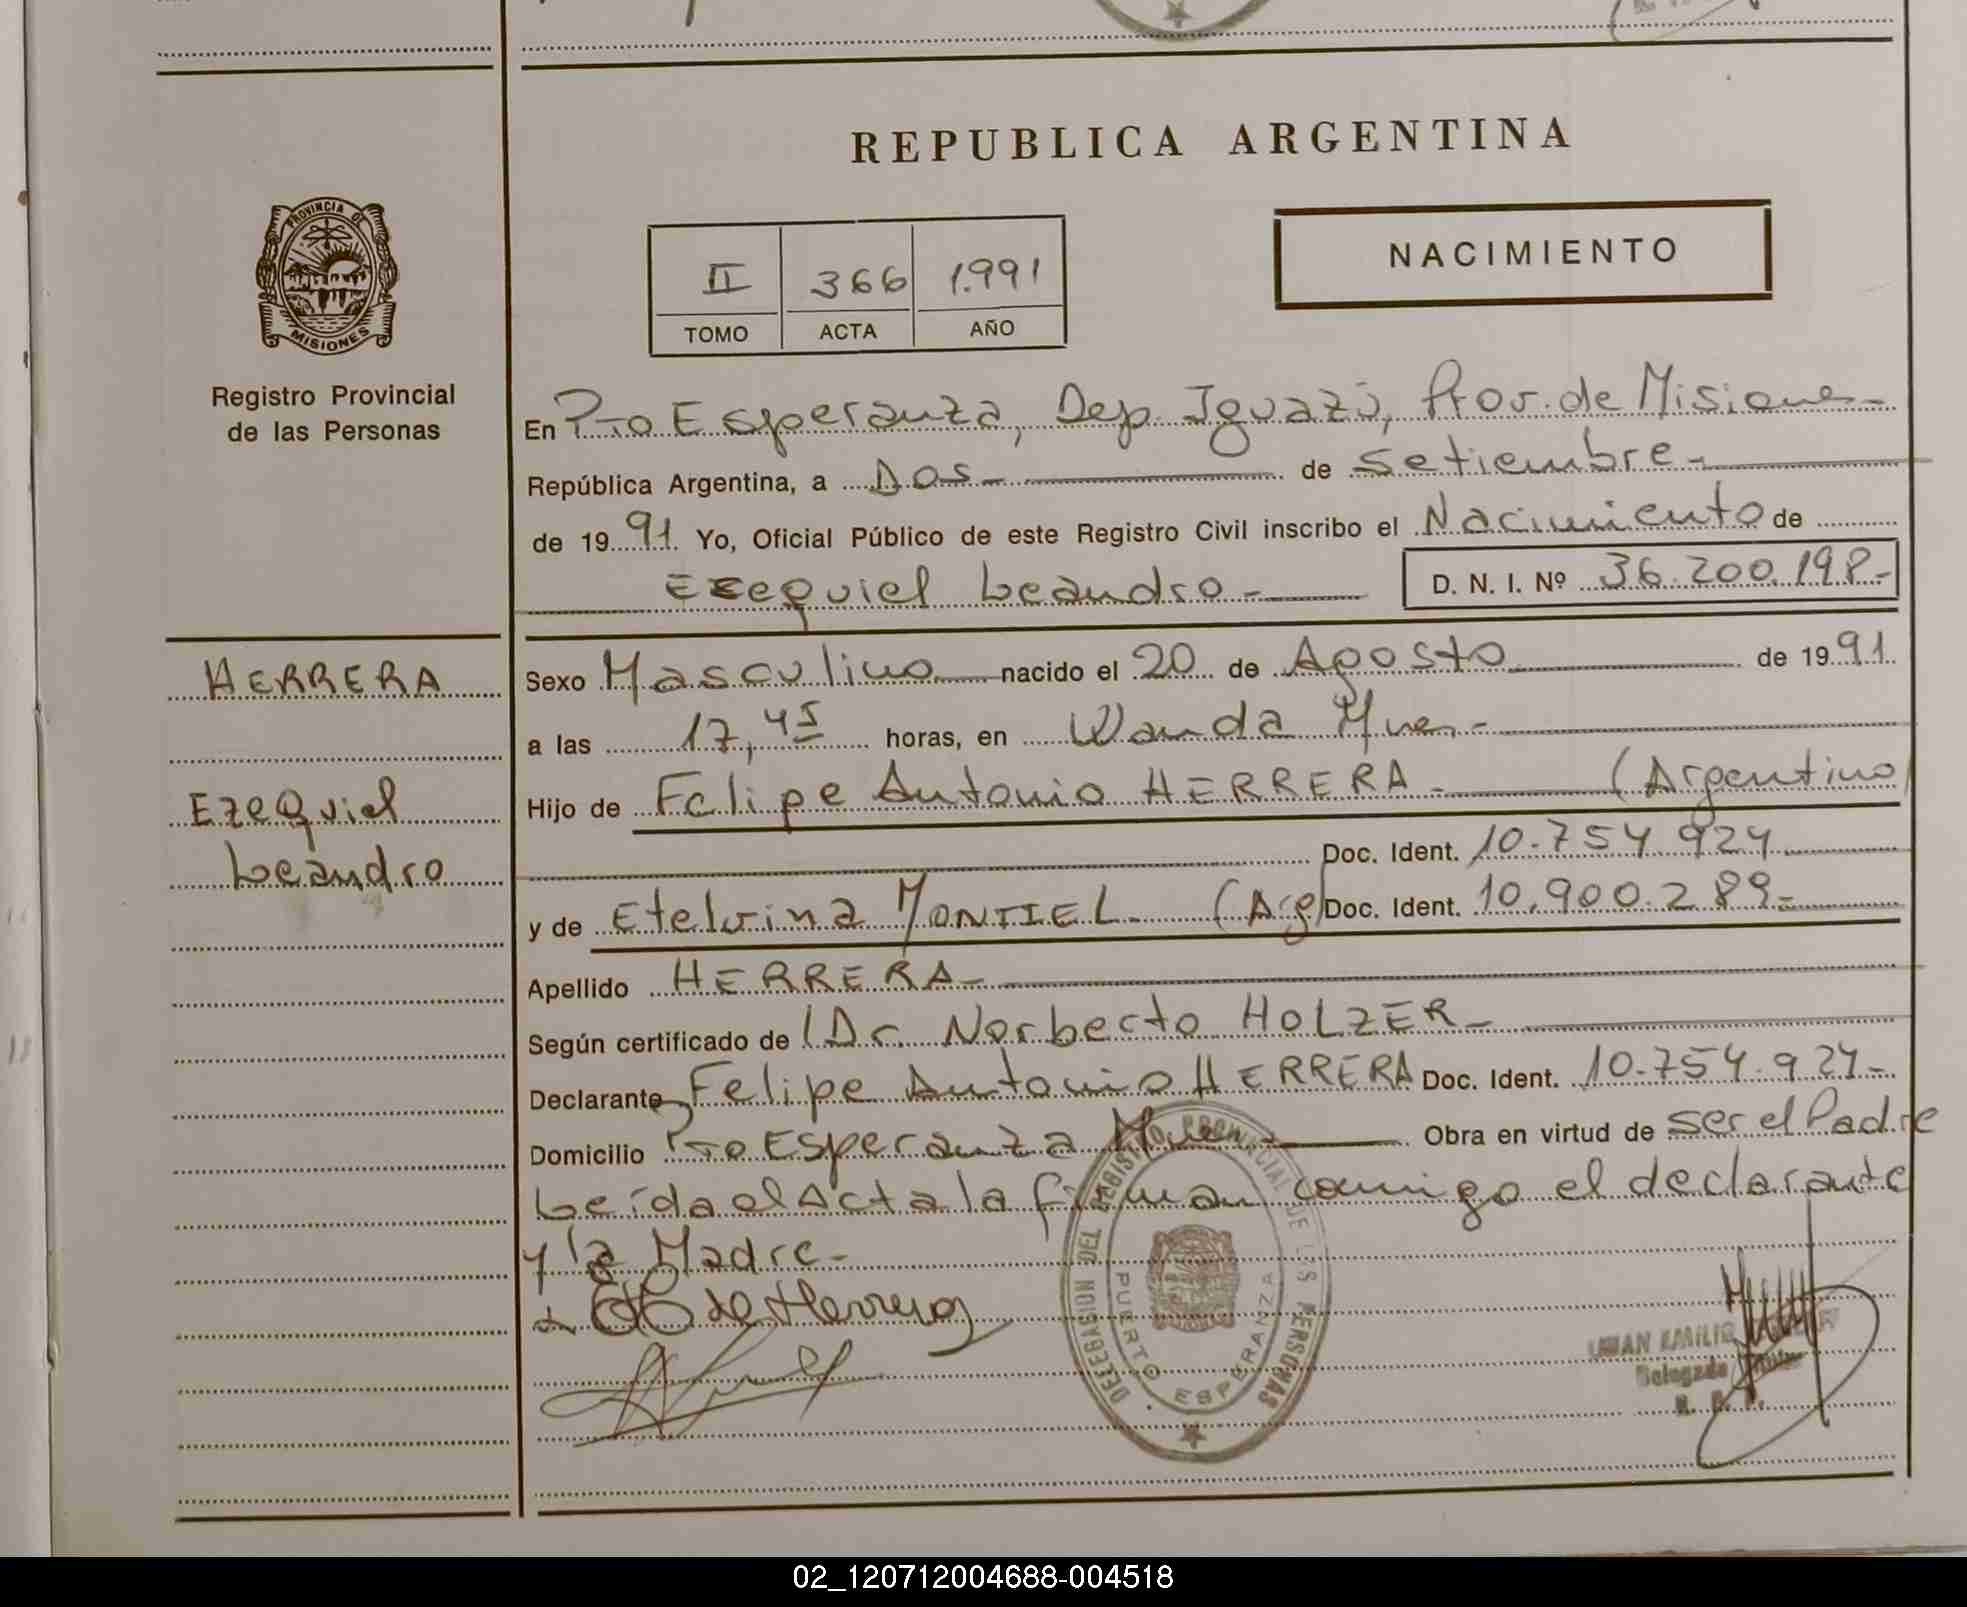 REPUBLICA ARGENTINA
PROVINCIA DE
MISIONES
Registro Provincial
de las Personas
II 366 1.991
TOMO ACTA AÑO
NACIMIENTO
En Pto Esperanza, Dep. Iguazú, Prov. de Misiones-
República Argentina, a Dos- de Setiembre-
de 1991. Yo, Oficial Público de este Registro Civil inscribo el Nacimiento de
Ezequiel Leandro- D. N. I. Nº 36.200.198-
HERRERA
Ezequiel
Leandro
Sexo Masculino nacido el 20 de Agosto de 1991
a las 17,45 horas, en Wanda Mnes.-
Hijo de Felipe Antonio HERRERA- (Argentino)
Doc. Ident. 10.754.924
y de Etelvina MONTIEL- (Arg) Doc. Ident. 10.900.289-
Apellido HERRERA-
Según certificado de Dr. Norberto HOLZER-
Declarante Felipe Antonio HERRERA Doc. Ident. 10.754.924-
Domicilio Pto Esperanza Mnes- Obra en virtud de ser el Padre
Leída el Acta la firman conmigo el declarante
y la Madre-
de Herrera
DELEGACION DEL REGISTRO PROVINCIAL DE LAS PERSONAS
PUERTO ESPERANZA
JUAN EMILIO
Delegado Titular
R. P. P.
02_120712004688-004518